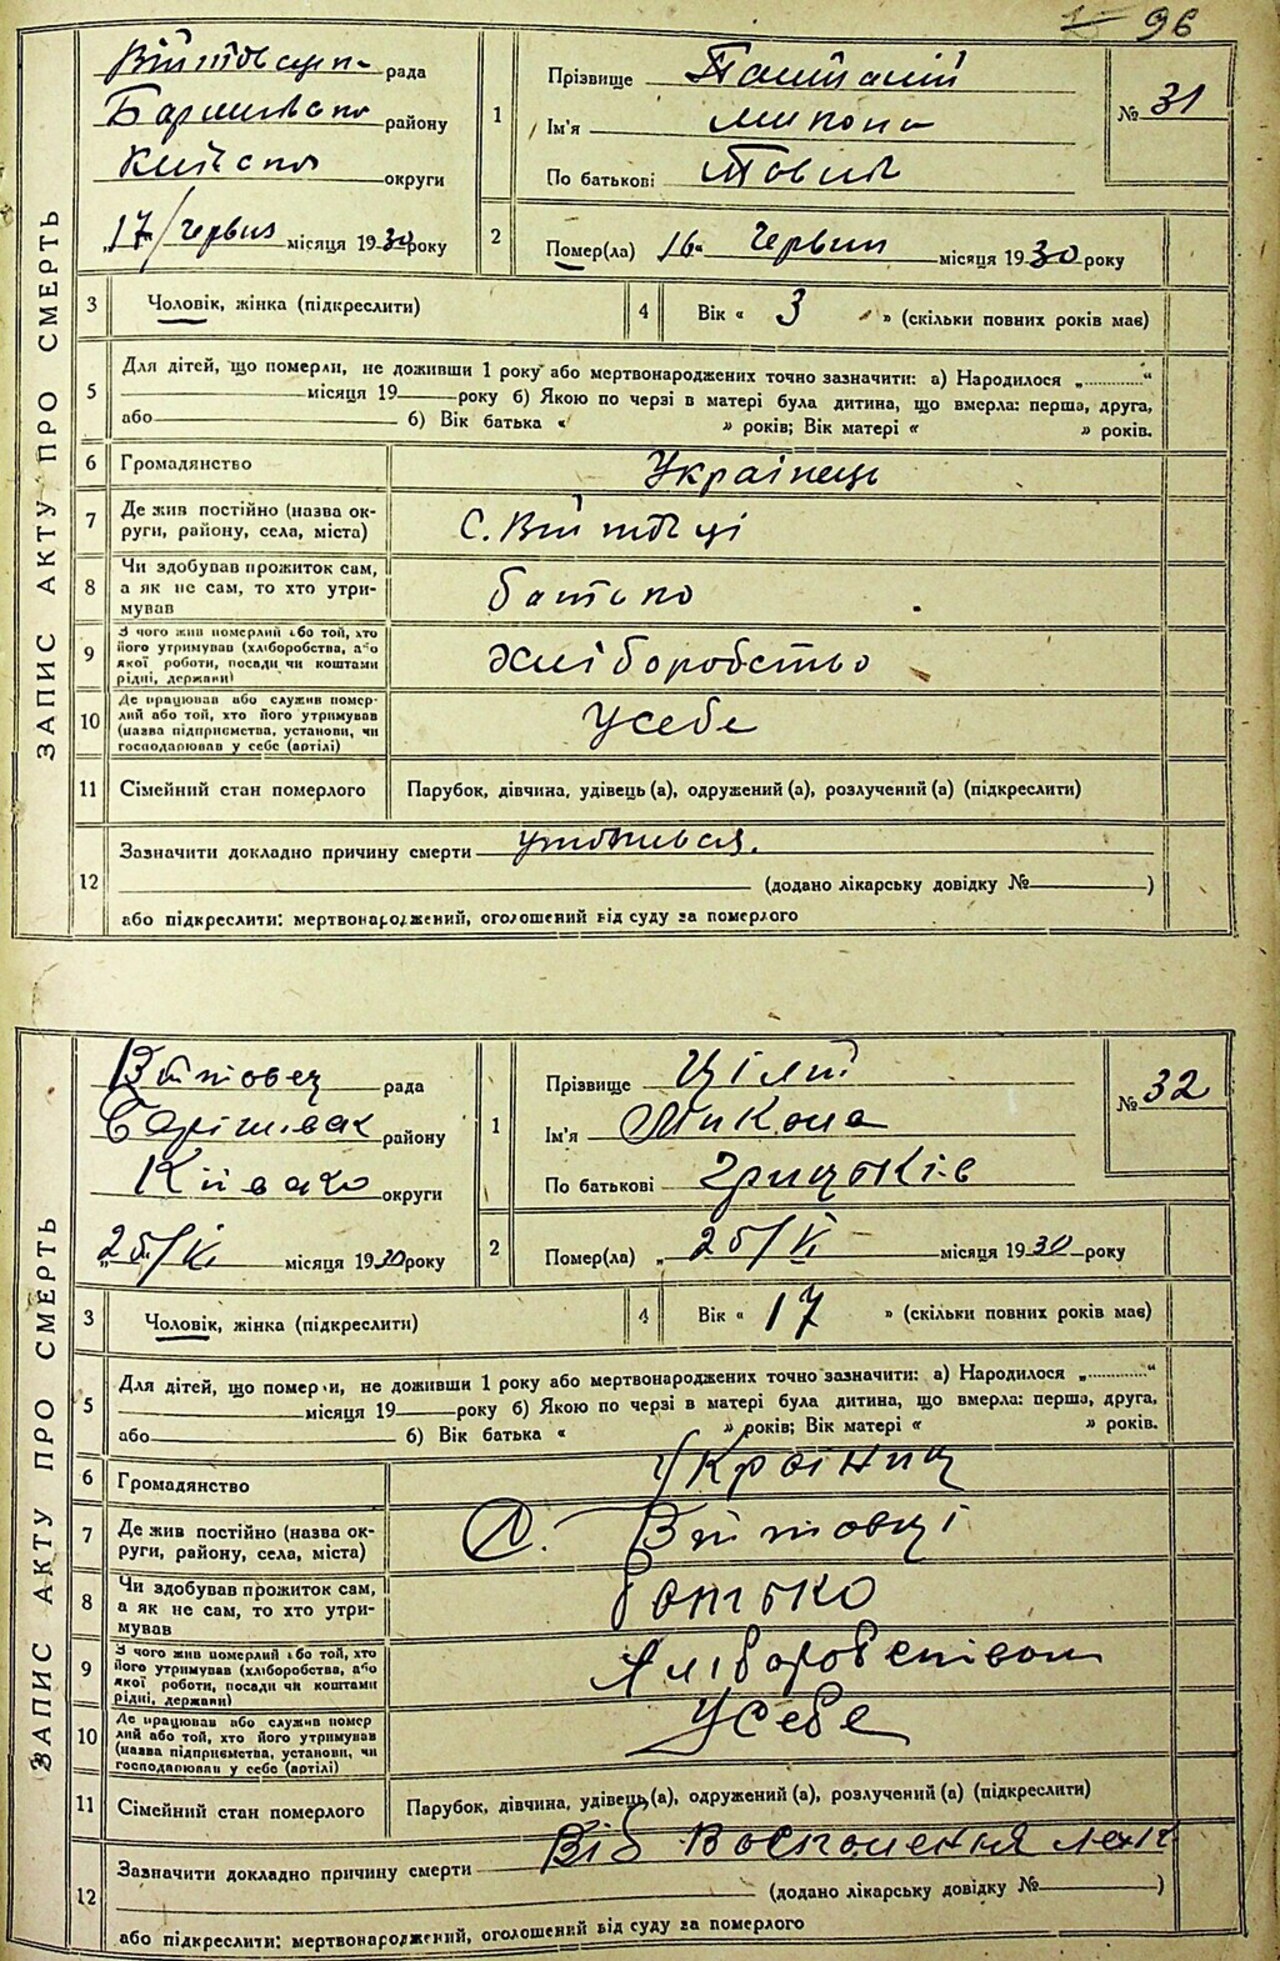 96
ЗАПИС АКТУ ПРО СМЕРТЬ
рада
району
округи
„17/червня місяця 1930 року
1
Прізвище
Ім'я Микола
По батькові
№ 31
2
Помер(ла) 16 „ червня місяця 1930 року
3 Чоловік, жінка (підкреслити)
4 Вік « 3 » (скільки повних років має)
5
Для дітей, що померли, не доживши 1 року або мертвонароджених точно зазначити: а) Народилося „ “
місяця 19 року б) Якою по черзі в матері була дитина, що вмерла: перша, друга,
або б) Вік батька « » років; Вік матері « » років.
6 Громадянство Українець
7 Де жив постійно (назва ок-
руги, району, села, міста) С. Війтовці
8 Чи здобував прожиток сам,
а як не сам, то хто утри-
мував батько
9 З чого жив померлий або той, хто
його утримував (хліборобства, або
якої роботи, посади чи коштами
рідні, держави) хліборобство
10 Де працював або служив помер-
лий або той, хто його утримував
(назва підприємства, установи, чи
господарював у себе (артілі) Усебе
11 Сімейний стан померлого Парубок, дівчина, удівець (а), одружений (а), розлучений (а) (підкреслити)
12
Зазначити докладно причину смерти утопився.
(додано лікарську довідку № )
або підкреслити: мертвонароджений, оголошений від суду за померлого
ЗАПИС АКТУ ПРО СМЕРТЬ
Війтовец рада
району
округи
місяця 1930 року
1
Прізвище Цілий
Ім'я Микола
По батькові Грицьків
№ 32
2
Помер(ла) „ місяця 1930 року
3 Чоловік, жінка (підкреслити)
4 Вік « 17 » (скільки повних років має)
5
Для дітей, що померли, не доживши 1 року або мертвонароджених точно зазначити: а) Народилося „ “
місяця 19 року б) Якою по черзі в матері була дитина, що вмерла: перша, друга,
або б) Вік батька « » років; Вік матері « » років.
6 Громадянство Україниц
7 Де жив постійно (назва ок-
руги, району, села, міста) С. Війтовці
8 Чи здобував прожиток сам,
а як не сам, то хто утри-
мував батько
9 З чого жив померлий або той, хто
його утримував (хліборобства, або
якої роботи, посади чи коштами
рідні, держави)
10 Де працював або служив помер
лий або той, хто його утримував
(назва підприємства, установи, чи
господарював у себе (артілі) Усебе
11 Сімейний стан померлого Парубок, дівчина, удівець (а), одружений (а), розлучений (а) (підкреслити)
12
Зазначити докладно причину смерти Від воспаления
(додано лікарську довідку № )
або підкреслити: мертвонароджений, оголошений від суду за померлого